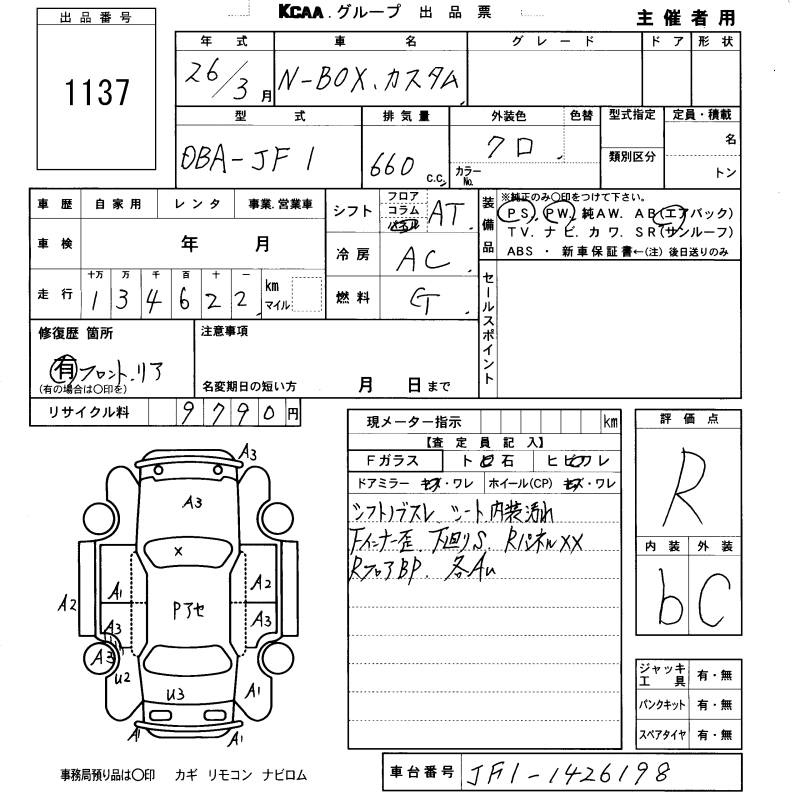 KCAA.グループ 出品票
主催者用
出品番号
1137
年式 車名 グレード ドア 形状
26/3月 N-BOX.カスタム
型式 排気量 外装色 色替 型式指定 定員・積載
DBA-JF1 660 c.c. クロ
カラーNo. 類別区分 名
トン
車歴 自家用 レンタ 事業.営業車
車検 年 月
十万 万 千 百 十 一
走行 1 3 4 6 2 2 km マイル
シフト フロア コラム パネル AT
冷房 AC
燃料
装備品 ※純正のみ〇印をつけて下さい。
PS. PW. 純AW. AB(エアバック)
TV. ナビ. カワ. SR(サンルーフ)
ABS ・ 新車保証書←(注) 後日送りのみ
セールスポイント
修復歴 箇所
有 フロント.リア
(有の場合は〇印を)
注意事項
名変期日の短い方 月 日まで
リサイクル料 9790円
現メーター指示 km
【査定員記入】
Fガラス ト石 ヒワレ
ドアミラー キズ・ワレ ホイール(CP) キズ・ワレ
シフトノブスレ シート.内装汚れ
Fインナー歪. 下回りS. Rパネルxx
RフロアBP. 各Au
評価点
R
内装 外装
b C
ジャッキ工具 有・無
パンクキット 有・無
スペアタイヤ 有・無
A3
A3
x
A1 A2
A2 Pアセ
A3 A3
A3
U2 U3 A1
A1 A1
事務局預り品は〇印 カギ リモコン ナビロム
車台番号 JF1-1426198